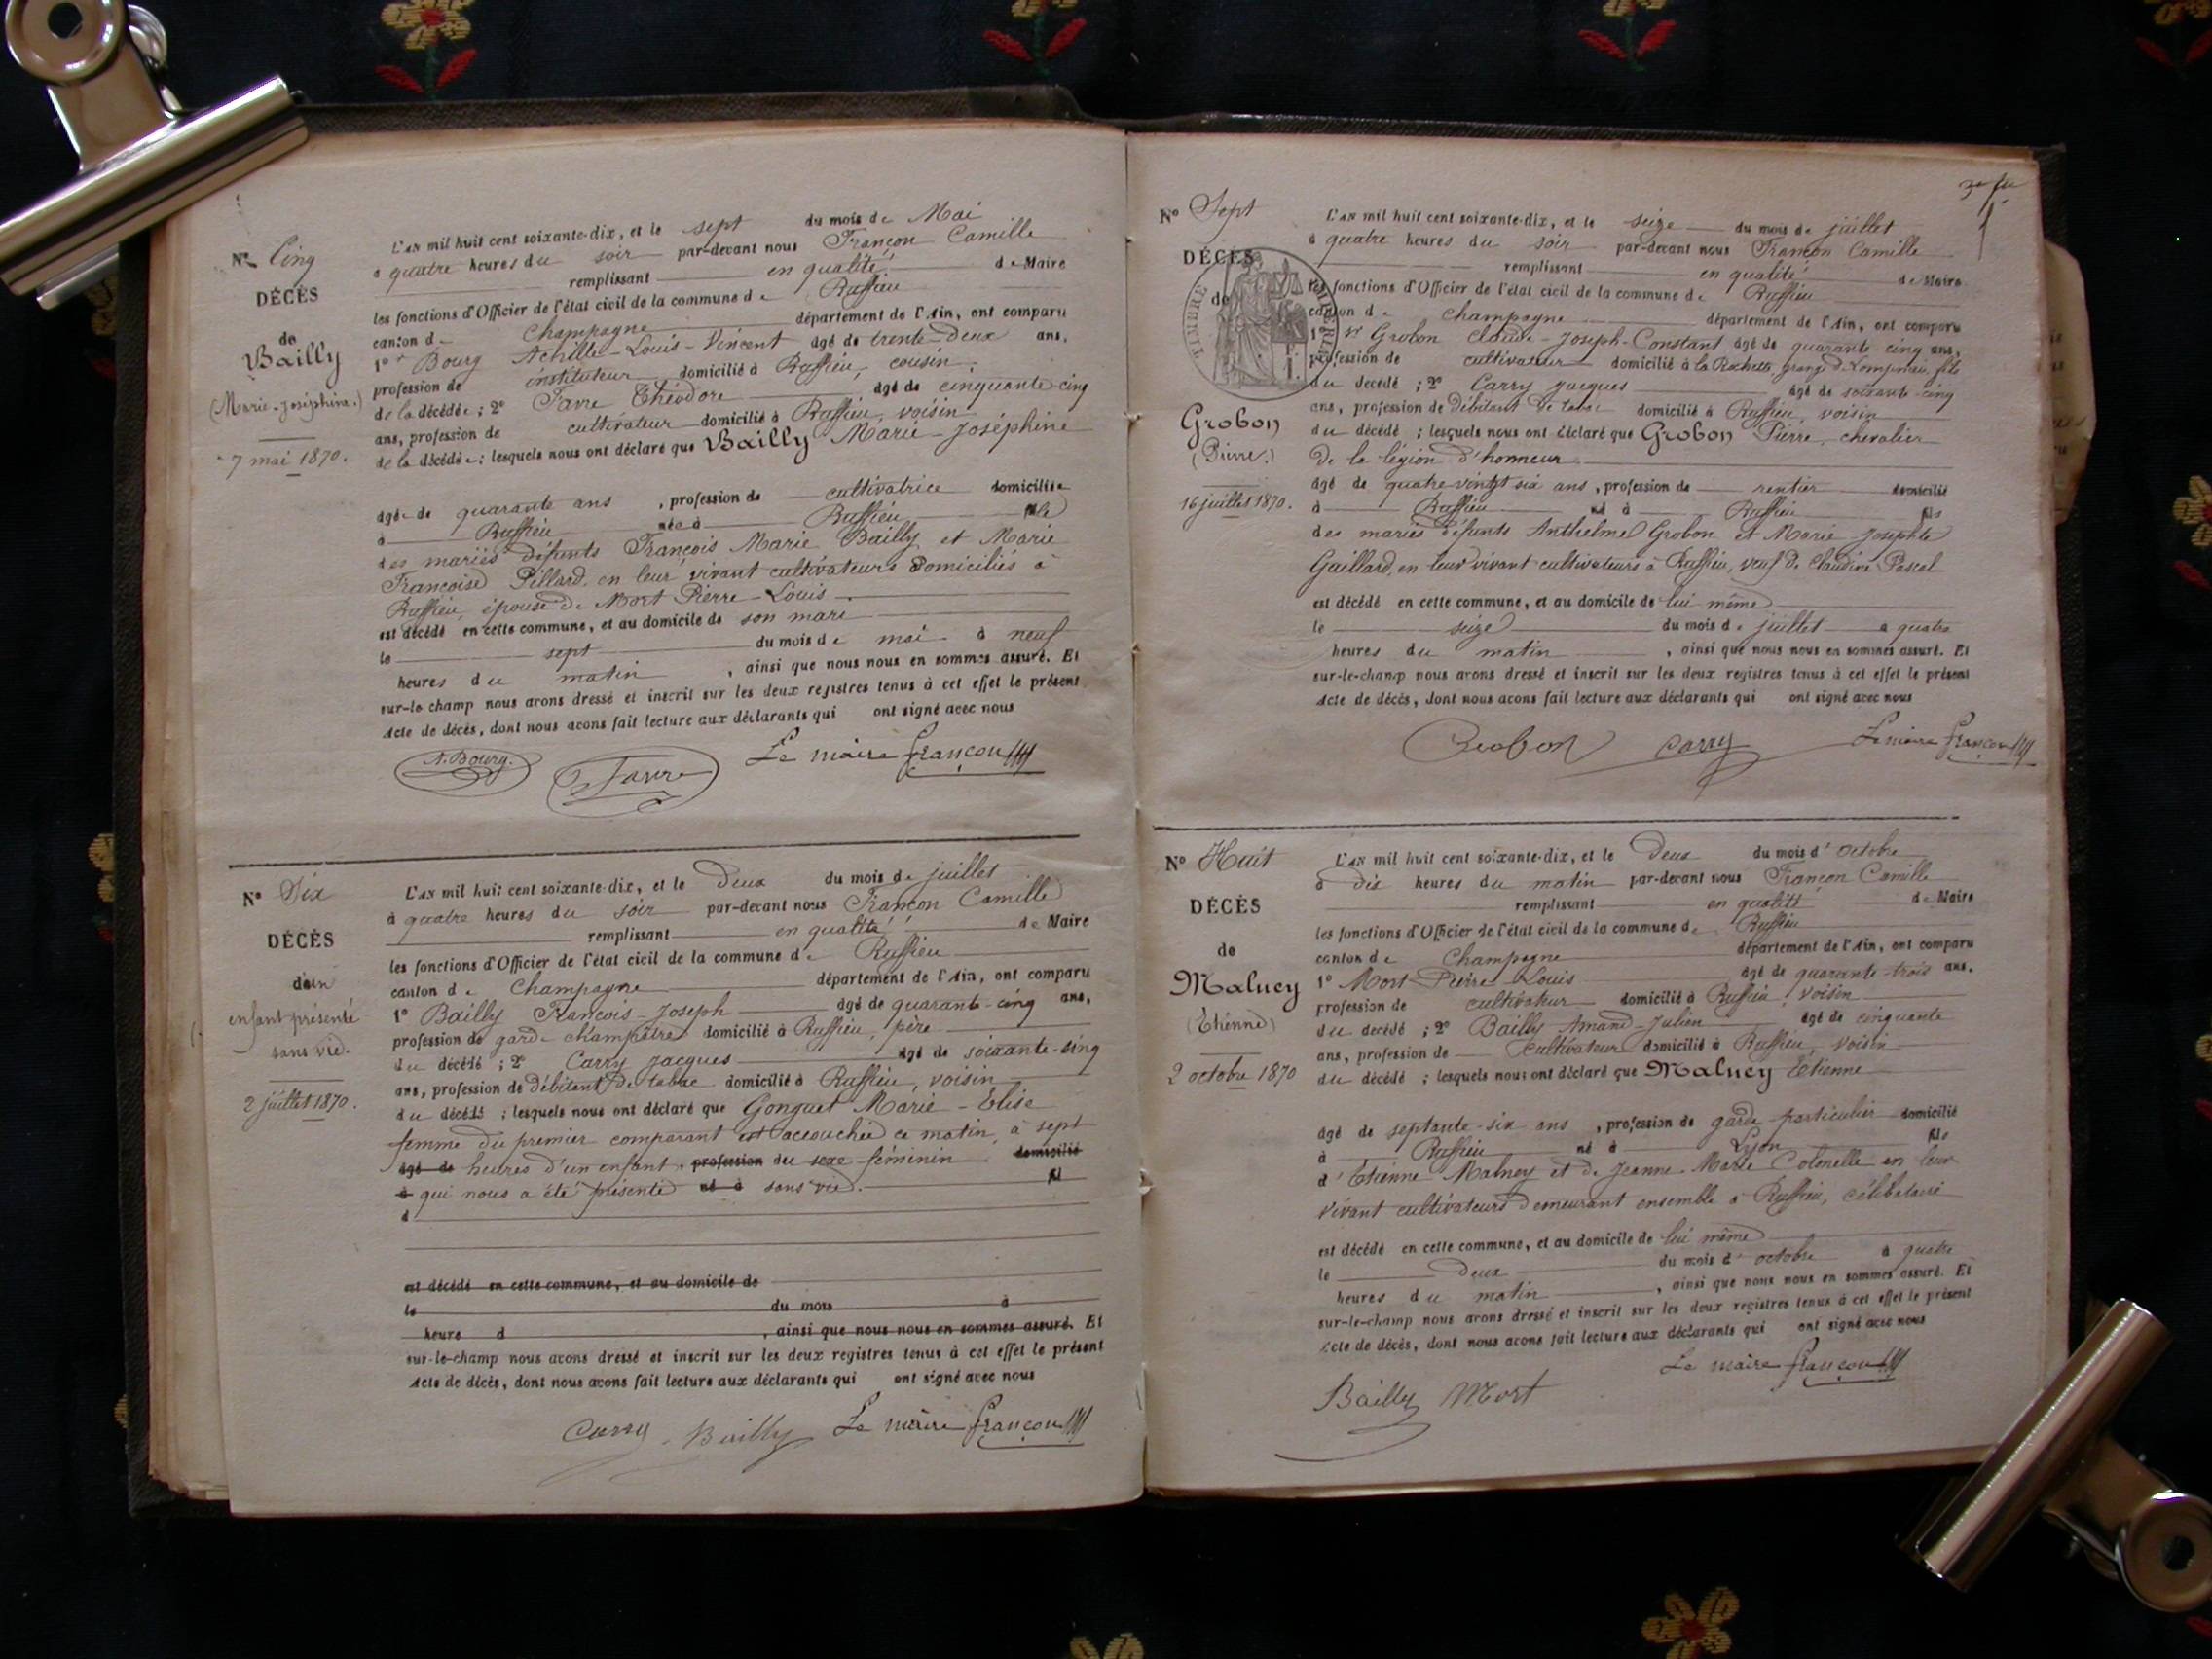 Nº Cinq
DÉCÈS
de
Bailly
(Marie-Joséphine.)
7 mai 1870.
L'AN mil huit cent soixante-dix, et le sept du mois de Mai
à quatre heures du soir par-devant nous Françon Camille
remplissant en qualité de Maire
les fonctions d'Officier de l'état civil de la commune de Ruffieu
canton de Champagne département de l'Ain, ont comparu
1º Bourg Achille-Louis-Vincent âgé de trente-deux ans,
profession de instituteur domicilié à Ruffieu, cousin
de la décédée ; 2º Favre Théodore âgé de cinquante cinq
ans, profession de cultivateur domicilié à Ruffieu, voisin
de la décédée ; lesquels nous ont déclaré que Bailly Marie-Joséphine
âgée de quarante ans , profession de cultivatrice domiciliée
à Ruffieu née à Ruffieu fille
des mariés défunts François Marie Bailly et Marie
Françoise Pillard, en leur vivant cultivateurs domiciliés à
Ruffieu, épouse de Mort Pierre-Louis
est décédé en cette commune, et au domicile de son mari
le sept du mois de mai à neuf
heures du matin , ainsi que nous nous en sommes assuré. Et
sur-le champ nous avons dressé et inscrit sur les deux registres tenus à cet effet le présent
Acte de décès, dont nous avons fait lecture aux déclarants qui ont signé avec nous
A. Bourg. Favre Le maire Françon
Nº Six
DÉCÈS
d'un
enfant présenté
sans vie.
2 juillet 1870.
L'AN mil huit cent soixante-dix, et le deux du mois de juillet
à quatre heures du soir par-devant nous Françon Camille
remplissant en qualité de Maire
les fonctions d'Officier de l'état civil de la commune de Ruffieu
canton de Champagne département de l'Ain, ont comparu
1º Bailly François-Joseph âgé de quarante-cinq ans,
profession de garde champêtre domicilié à Ruffieu, père
du décédé ; 2º Carry Jacques âgé de soixante-cinq
ans, profession de débitant de tabac domicilié à Ruffieu, voisin
du décédé ; lesquels nous ont déclaré que Gonguet Marie-Elise
femme du premier comparant est accouchée ce matin, à sept
âgé de heures d'un enfant profession du sexe féminin domicilié
à qui nous a été présenté né à sans vie. fil
d
est décédé en cette commune, et au domicile de
le du mois à
heure d , ainsi que nous nous en sommes assuré. Et
sur-le-champ nous avons dressé et inscrit sur les deux registres tenus à cet effet le présent
Acte de décès, dont nous avons fait lecture aux déclarants qui ont signé avec nous
Carry Bailly Le maire Françon
Nº Sept
DÉCÈS
de
TIMBRE IMPÉRIAL
Grobon
(Pierre.)
16 juillet 1870.
L'AN mil huit cent soixante-dix, et le seize du mois de juillet
à quatre heures du soir par-devant nous Françon Camille
remplissant en qualité de Maire
les fonctions d'Officier de l'état civil de la commune de Ruffieu
canton de Champagne département de l'Ain, ont comparu
1º Grobon Claude-Joseph-Constant âgé de quarante cinq ans,
profession de cultivateur domicilié à la Rochette, grange de Lompnieu, fils
du décédé ; 2º Carry Jacques âgé de soixante-cinq
ans, profession de débitant de tabac domicilié à Ruffieu, voisin
du décédé ; lesquels nous ont déclaré que Grobon Pierre, chevalier
de la légion d'honneur
âgé de quatre-vingt six ans , profession de rentier domicilié
à Ruffieu né à Ruffieu fils
des mariés défunts Anthelme Grobon et Marie Josephte
Gaillard, en leur vivant cultivateurs à Ruffieu, veuf de Claudine Pascal
est décédé en cette commune, et au domicile de lui même
le seize du mois de juillet à quatre
heures du matin , ainsi que nous nous en sommes assuré. Et
sur-le-champ nous avons dressé et inscrit sur les deux registres tenus à cet effet le présent
Acte de décès, dont nous avons fait lecture aux déclarants qui ont signé avec nous
Grobon Carry Le maire Françon
Nº Huit
DÉCÈS
de
Malney
(Etienne)
2 octobre 1870
L'AN mil huit cent soixante-dix, et le deux du mois d'octobre
à dix heures du matin par-devant nous Françon Camille
remplissant en qualité de Maire
les fonctions d'Officier de l'état civil de la commune de Ruffieu
canton de Champagne département de l'Ain, ont comparu
1º Mort Pierre Louis âgé de quarante-trois ans,
profession de cultivateur domicilié à Ruffieu, voisin
du décédé ; 2º Bailly Amand-Julien âgé de cinquante
ans, profession de cultivateur domicilié à Ruffieu, voisin
du décédé ; lesquels nous ont déclaré que Malney Etienne
âgé de septante-six ans , profession de garde particulier domicilié
à Ruffieu né à Lyon fils
d'Etienne Malney et de Jeanne-Marie Colonelle en leur
vivant cultivateurs demeurant ensemble à Ruffieu, célibataire
est décédé en cette commune, et au domicile de lui même
le deux du mois d'octobre à quatre
heures du matin , ainsi que nous nous en sommes assuré. Et
sur-le-champ nous avons dressé et inscrit sur les deux registres tenus à cet effet le présent
Acte de décès, dont nous avons fait lecture aux déclarants qui ont signé avec nous
Le maire Françon
Bailly Mort